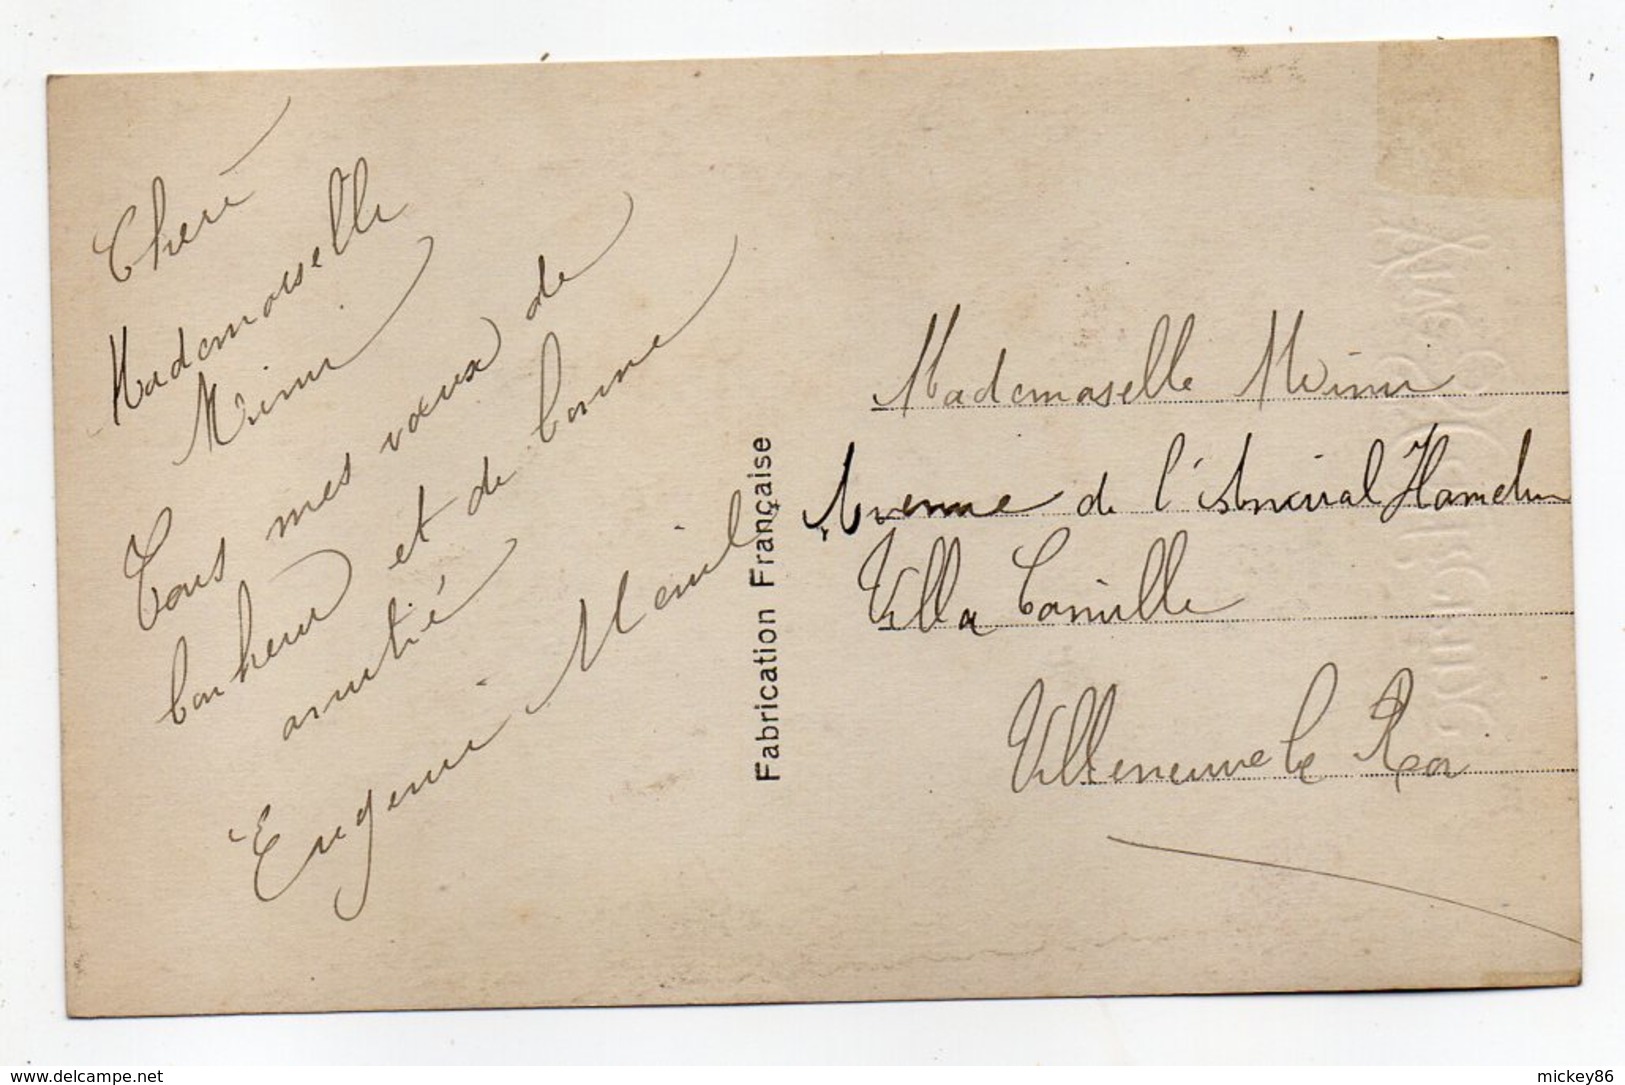 Cheré
Mademoiselle
Mimi
Tous mes vœux de
bonheur et de bonne
amitié
Eugenie
Fabrication Française
Mademoiselle Mimi
Avenue de l'Amiral Hamelin
Villa Camille
Villeneuve le Roi
www.delcampe.net
mickey86